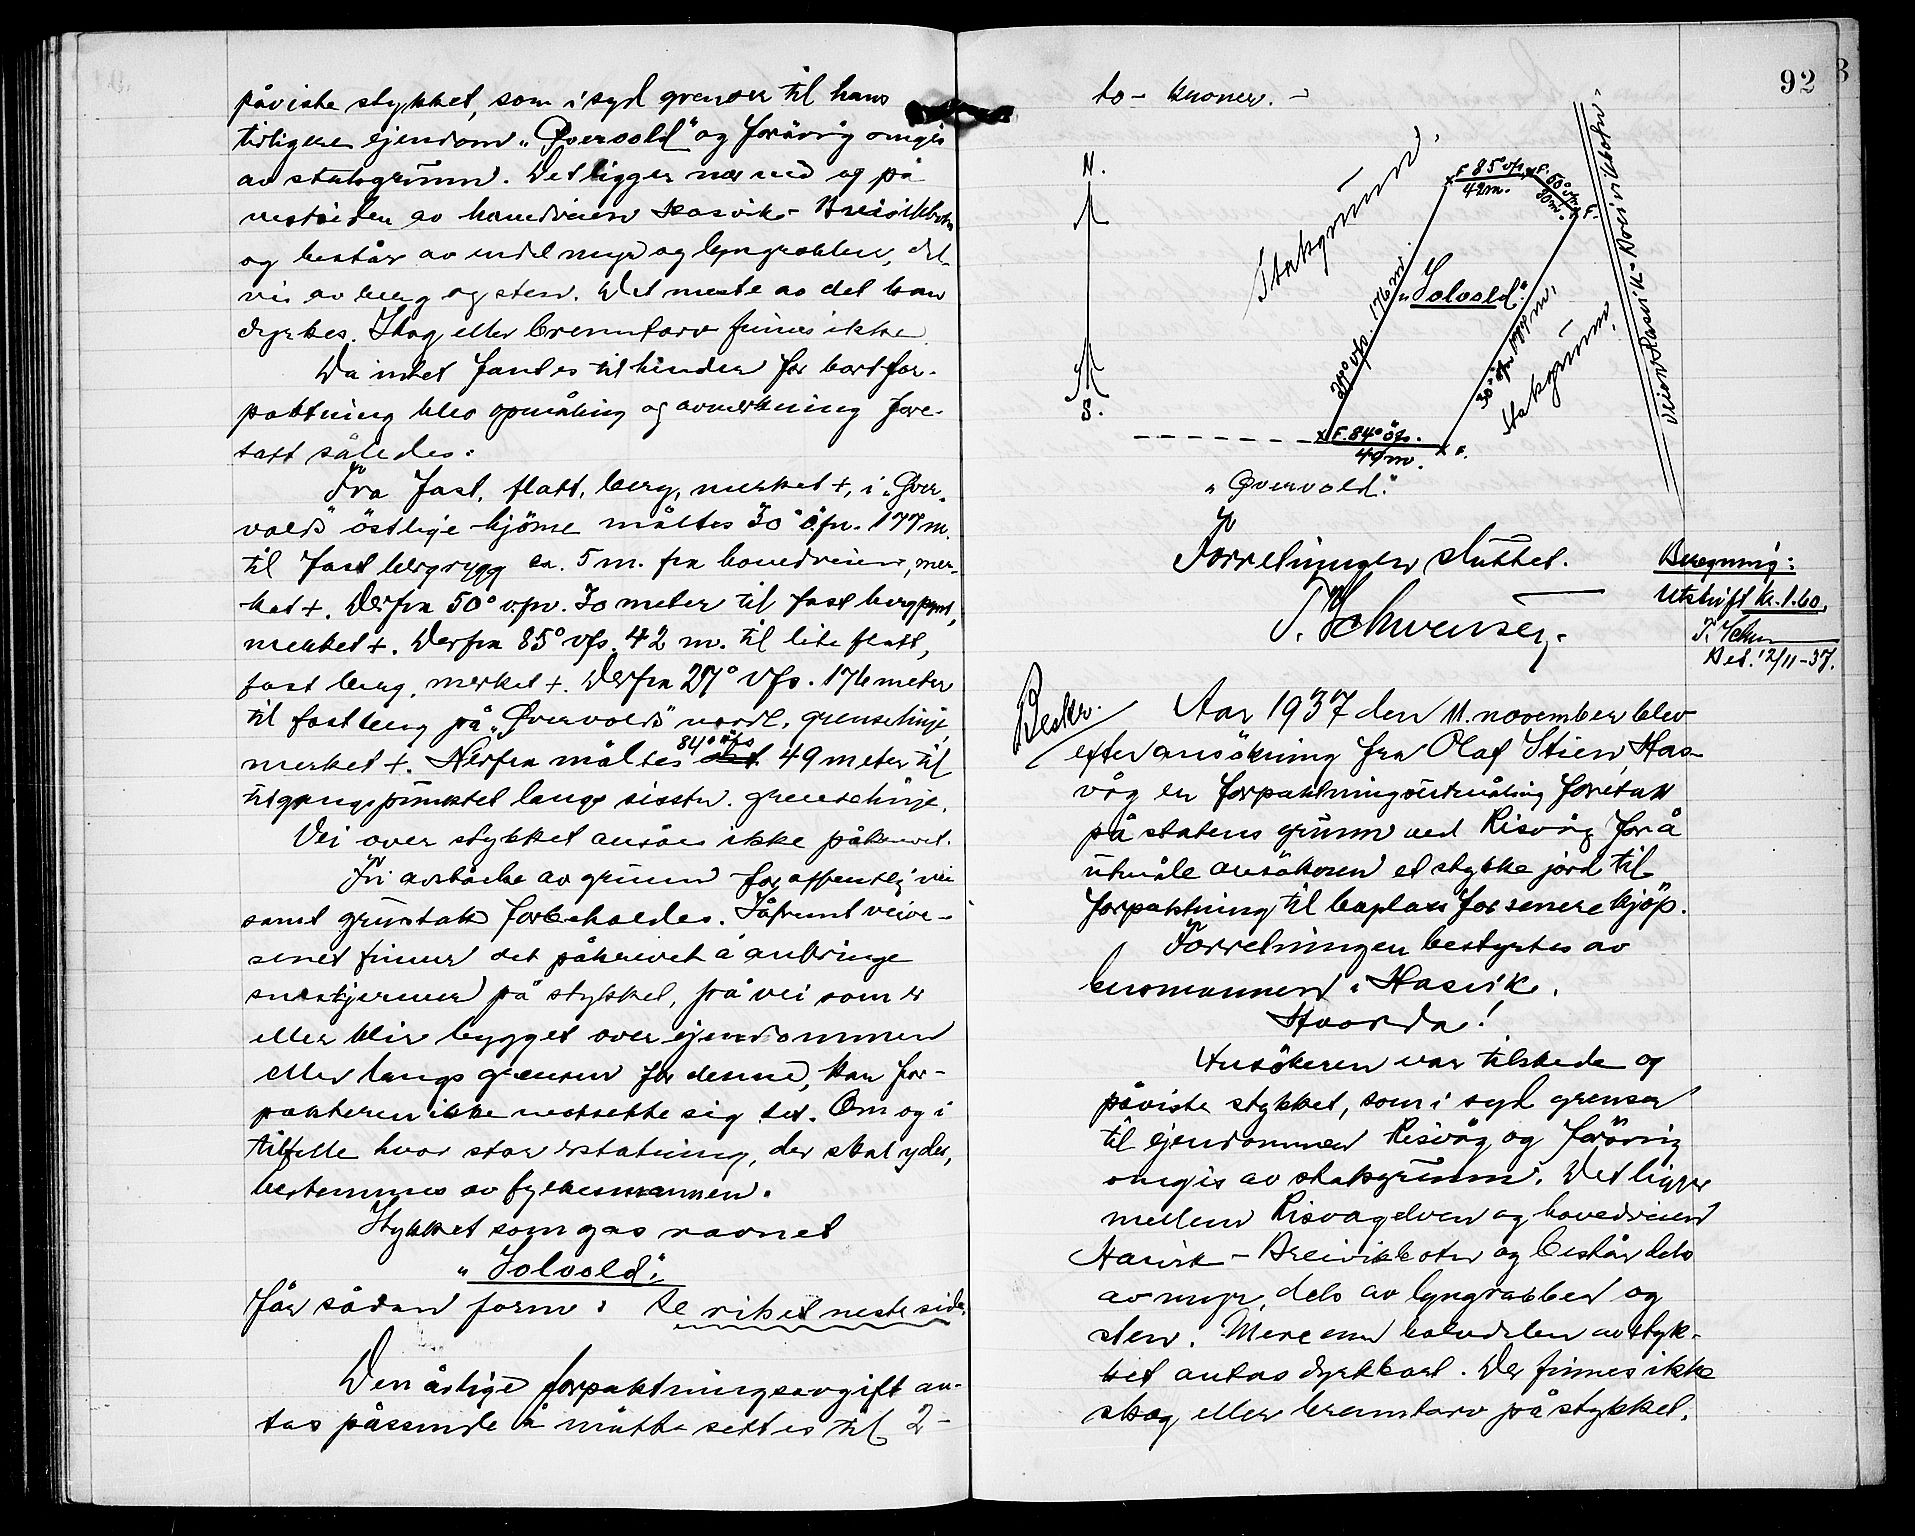 påviste stykket, som i syd grenser til hans
tidligere ejendom "Øvervold" og forövrig omgis
av statsgrunn. Det ligger nær ved og på
vestsiden av hovedveien Hasvik - Breivikbotn
og består av endel myr og lyngrabber, del-
vis av berg og sten. Det meste av det kan
dyrkes. Skog eller brenntorv finnes ikke.
Da intet fantes til hinder for bortfor-
paktning blev opmåling og avmerkning fore-
tatt således:
Fra fast, flatt, berg, merket +, i "Øver-
volds" östlige hjörne måltes 30° öfn. 177 m.
til fast bergrygg ca. 5 m. fra hovedveien, mer-
ket +. Derfra 50° vfn. 30 meter til fast bergpynt,
merket +. Derfra 85° vfs. 42 m. til lite flatt,
fast berg, merket +. Derfra 27° vfs. 176 meter
til fast berg på "Øvervolds" nordl. grenselinje
84° öfs
merket +. Herfra måltes 49 meter til
utgangspunktet langs sisstn. grenselinje.
Vei over stykket ansåes ikke påkrevet.
Fri avståelse av grunn for offentlig vei
samt grustak forbeholdes. Såfremt veive-
senet finner det påkrevet å anbringe
sneskjermer på stykket, på vei som er
eller blir bygget over ejendommen
eller langs grensen for denne, kan for-
pakteren ikke motsette sig det. Om og i
tilfelle hvor stor erstatning, der skal ydes,
bestemmes av fylkesmannen.
Stykket som gas navnet
"Solvold".
får sådan form: Se risset neste side.
Den årlige forpaktningsavgift an-
tas passende å måtte settes til 2 -
92
to - kroner. -
N.
S.
Statsgrunn.
F. 85° vfs.
42 m.
F. 50° vfn.
30 m.
F.
27° vfs. 176 m.
"Solvold".
30° öfn 177 m.
Statsgrunn.
Veien Hasvik - Breivikbotn.
F. 84° öfs.
49 m.
F.
"Øvervold".
Forretningen sluttet.
Beregning:
Utskrift kr. 1.60.
Bet. 12/11-37.
Beskr.
Aar 1937 den 11. november blev
efter ansökning fra Olaf Stien, Has-
våg en forpaktningsutmåling foretatt
på statens grunn ved Risvåg for å
utmåle ansökeren et stykke jord til
forpaktning til boplass for senere kjöp.
Forretningen bestyrtes av
lensmannen i Hasvik.
Hvorda!
Ansökeren var tilstede og
påviste stykket, som i syd grenser
til ejendommen Risvåg og forövrig
omgis av statsgrunn. Det ligger
mellem Risvagelven og hovedveien
Hasvik - Breivikbotn og består dels
av myr, dels av lyngrabber og
sten. Mere enn halvdelen av styk-
ket antas dyrkbart. Der finnes ikke
skog eller brenntorv på stykket.